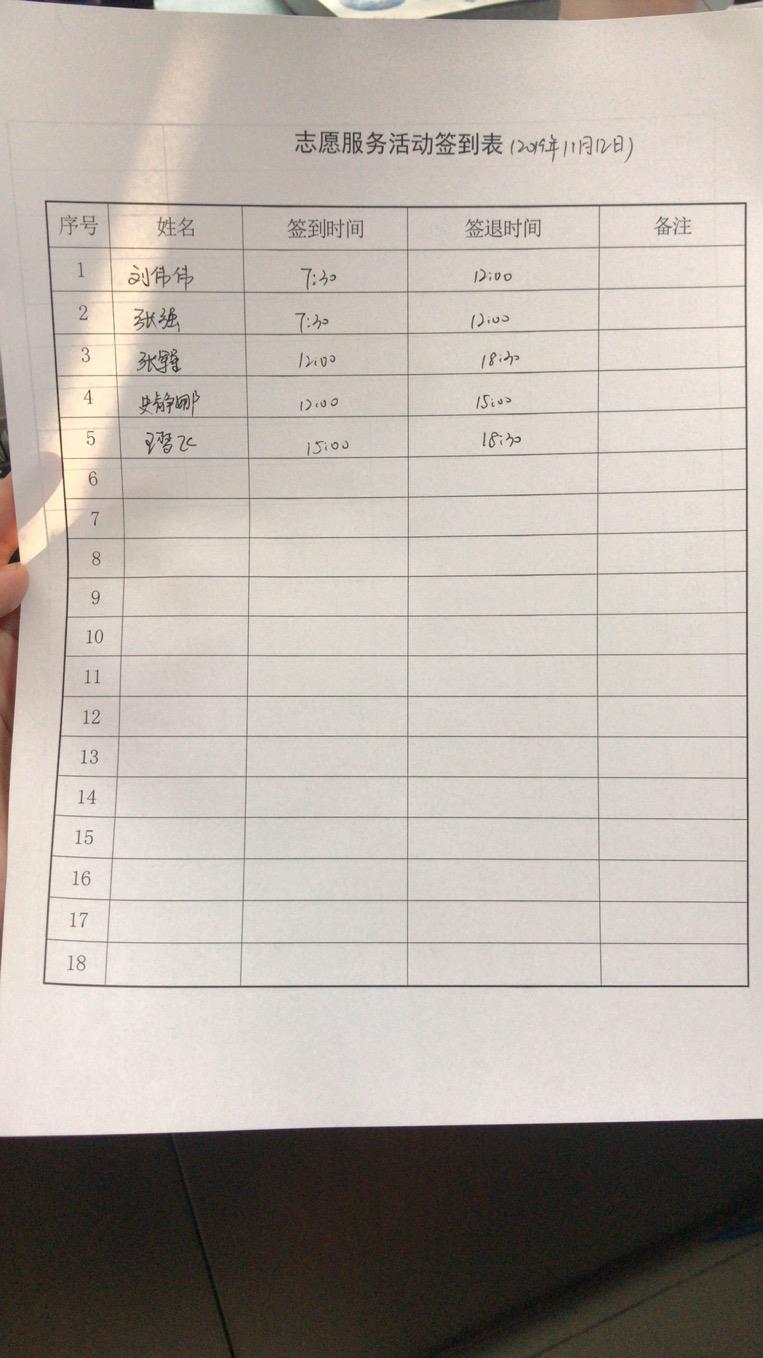 志愿服务活动签到表(2019年11月12日)
序号 姓名 签到时间 签退时间 备注
1 刘伟伟 7:30 12:00
2 张强 7:30 12:00
3 张 12:00 18:30
4 史静娜 12:00 15:00
5 王 飞 15:00 18:30
6
7
8
9
10
11
12
13
14
15
16
17
18